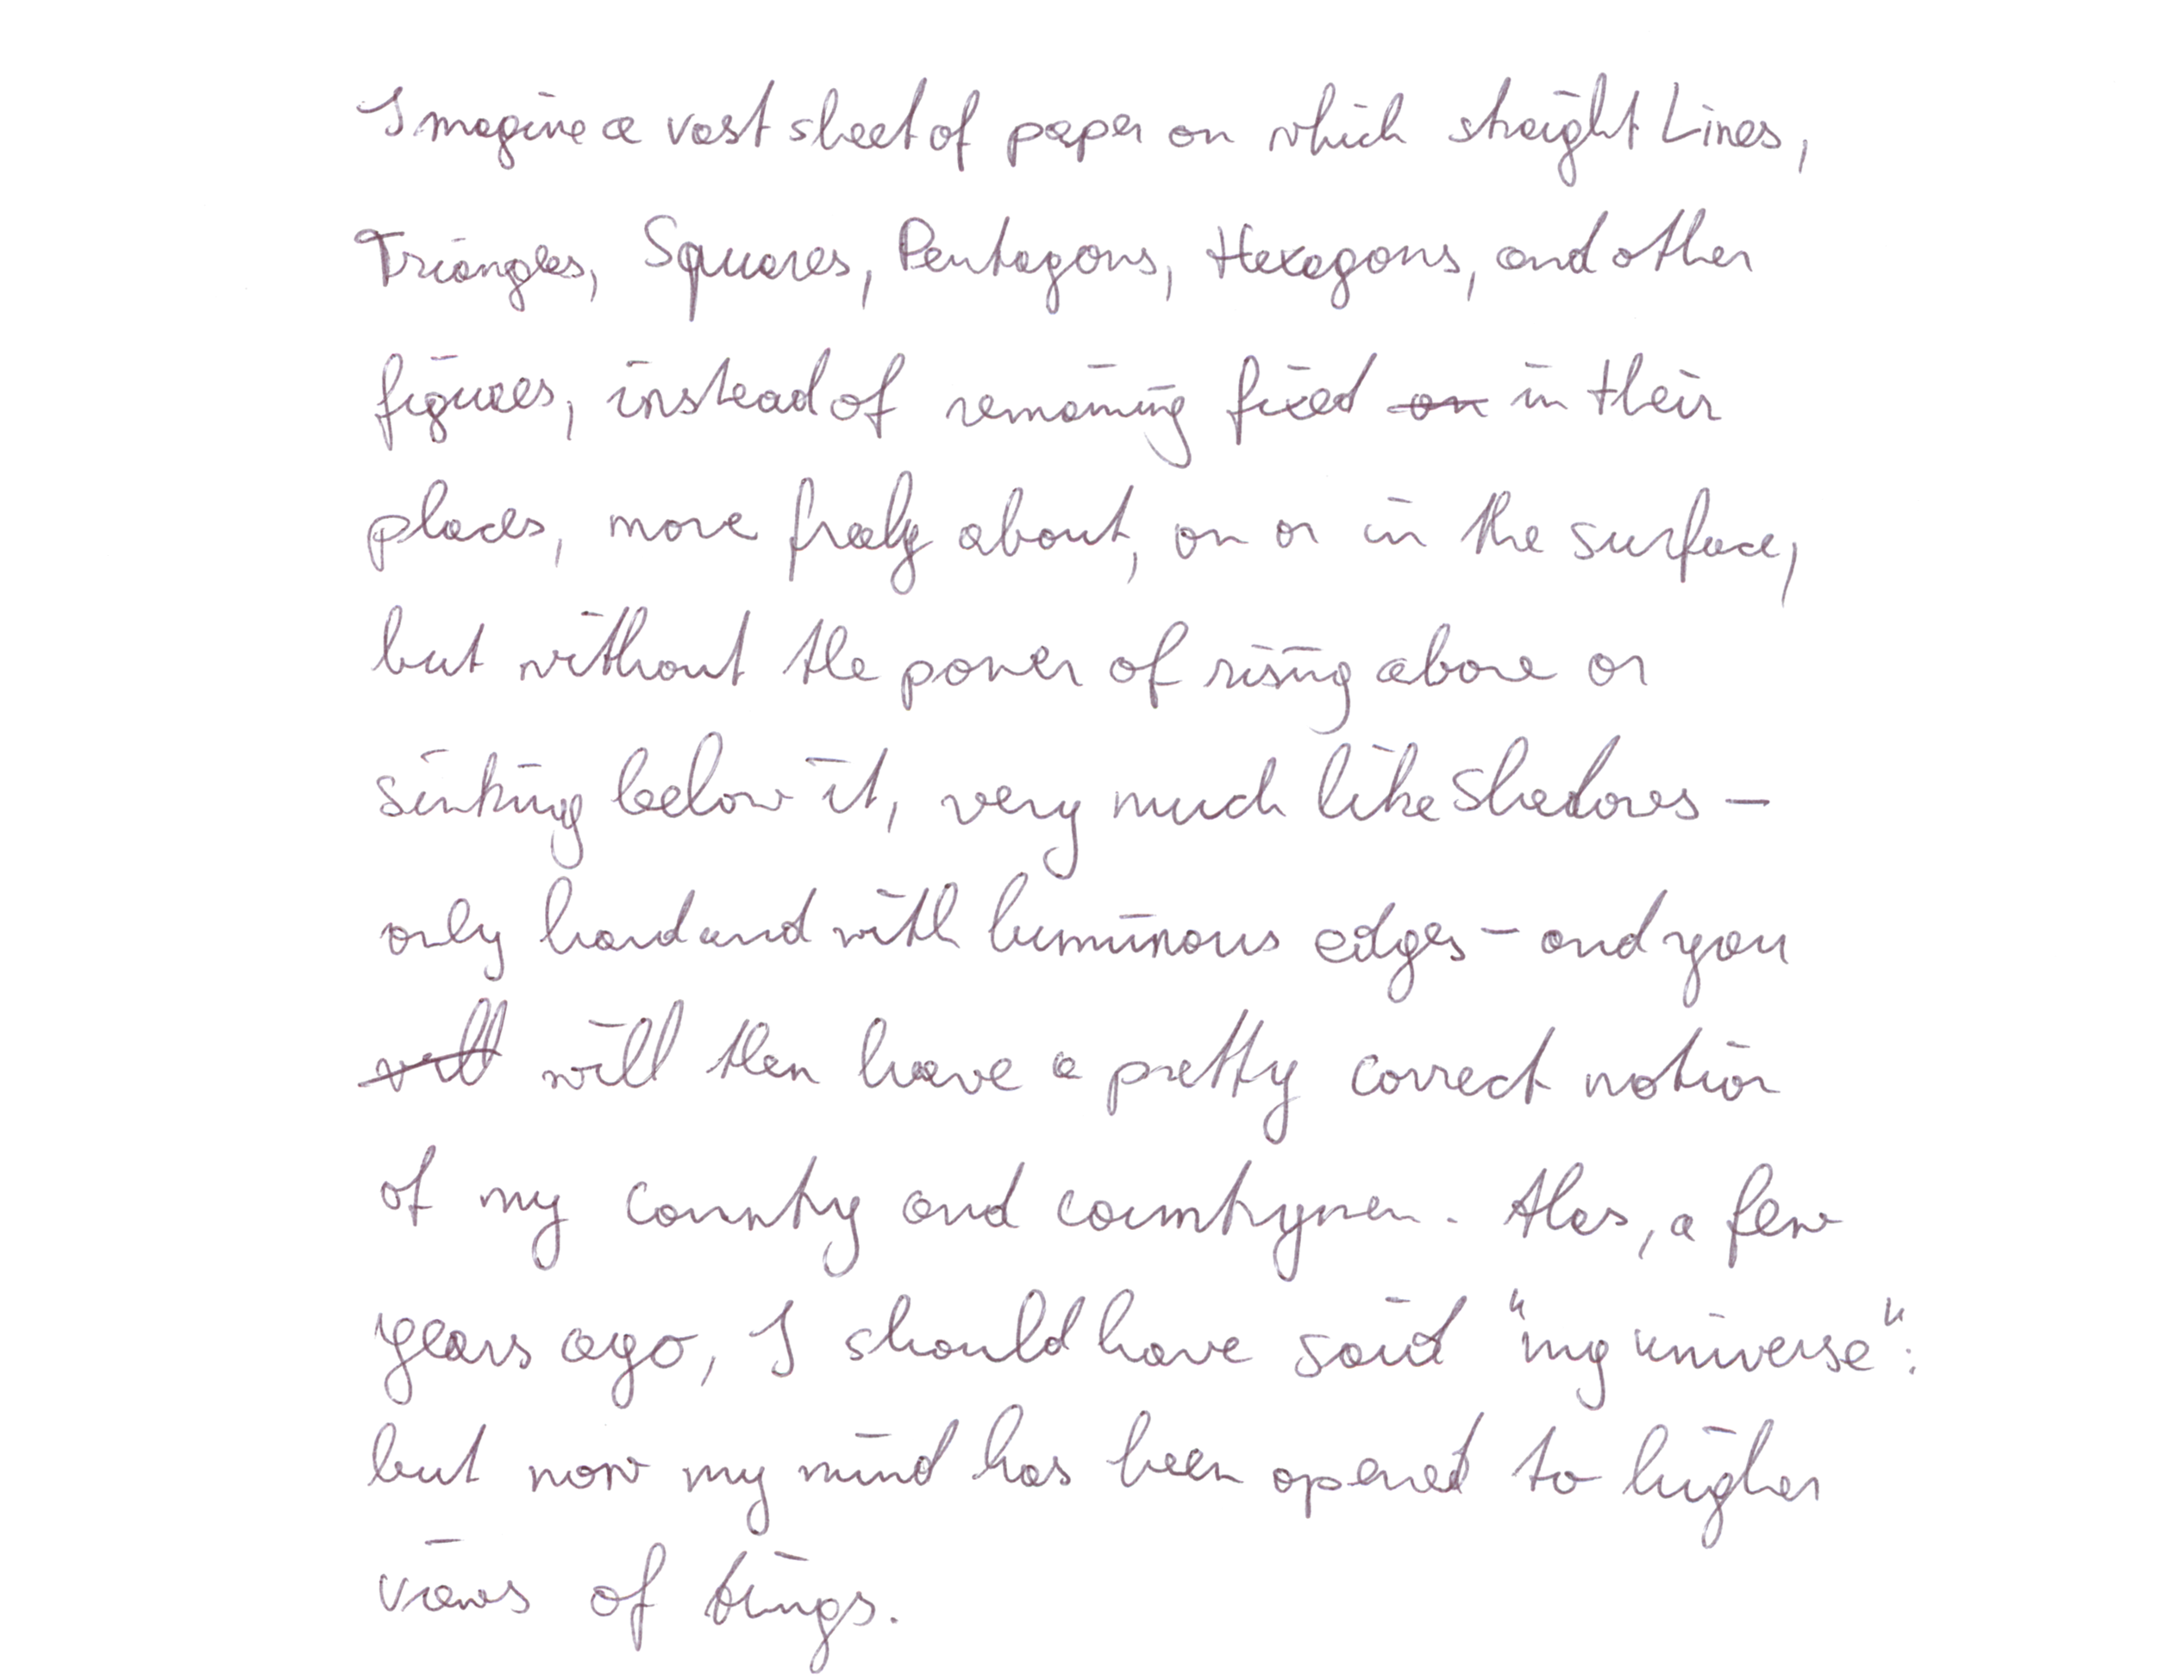 Imagine a vast sheet of paper on which straight Lines,
Triangles, Squares, Pentagons, Hexagons, and other
figures, instead of remaining fixed on in their
places, move freely about, on or in the surface,
but without the power of rising above or
sinking below it, very much like shadows –
only hard and with luminous edges – and you
will will then have a pretty correct notion
of my country and countrymen. Alas, a few
years ago, I should have said "my universe":
but now my mind has been opened to higher
views of things.